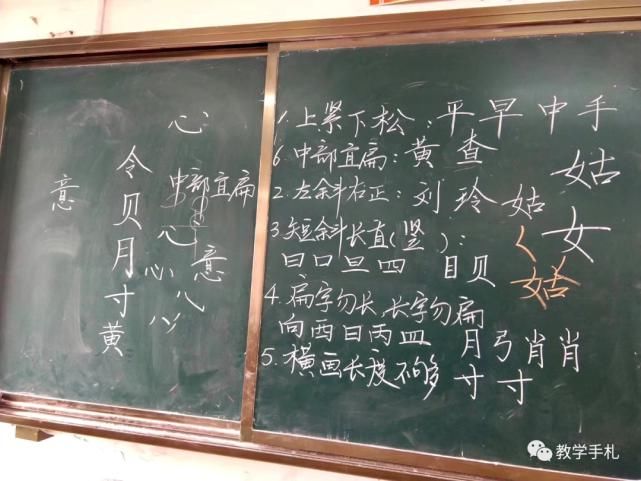 心
令
意
贝
中部宜扁
月
心
心
意
寸
黄
1.上紧下松:平早中手
6中部宜扁:黄查
姑
2.左斜右正:刘玲姑
女
3.短斜长直(竖):
曰口旦四 目贝
姑
4.扁字勿长,长字勿扁
向西曰丙皿 月弓肖肖
5.横画长度不够 寸寸
教学手札